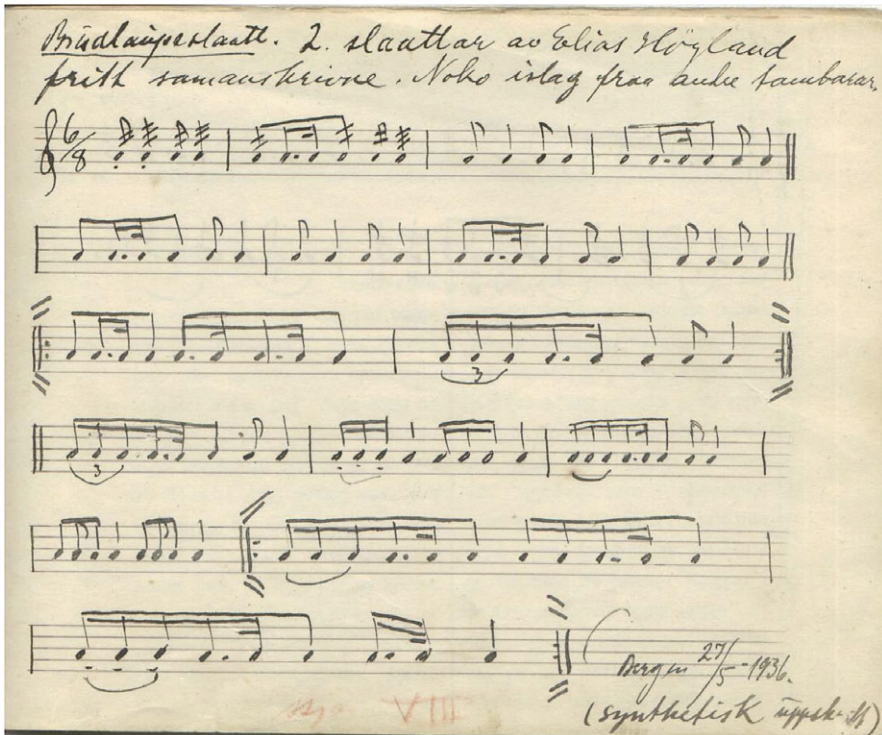 Brudlaupsslaatt. 2. slaattar av Elias Högland
fritt samanskrivne. Noko islag fraa andre tambarar.
6/8
3
3
Bergen 27/5-1936.
(synthetisk uppskrift)
VIII